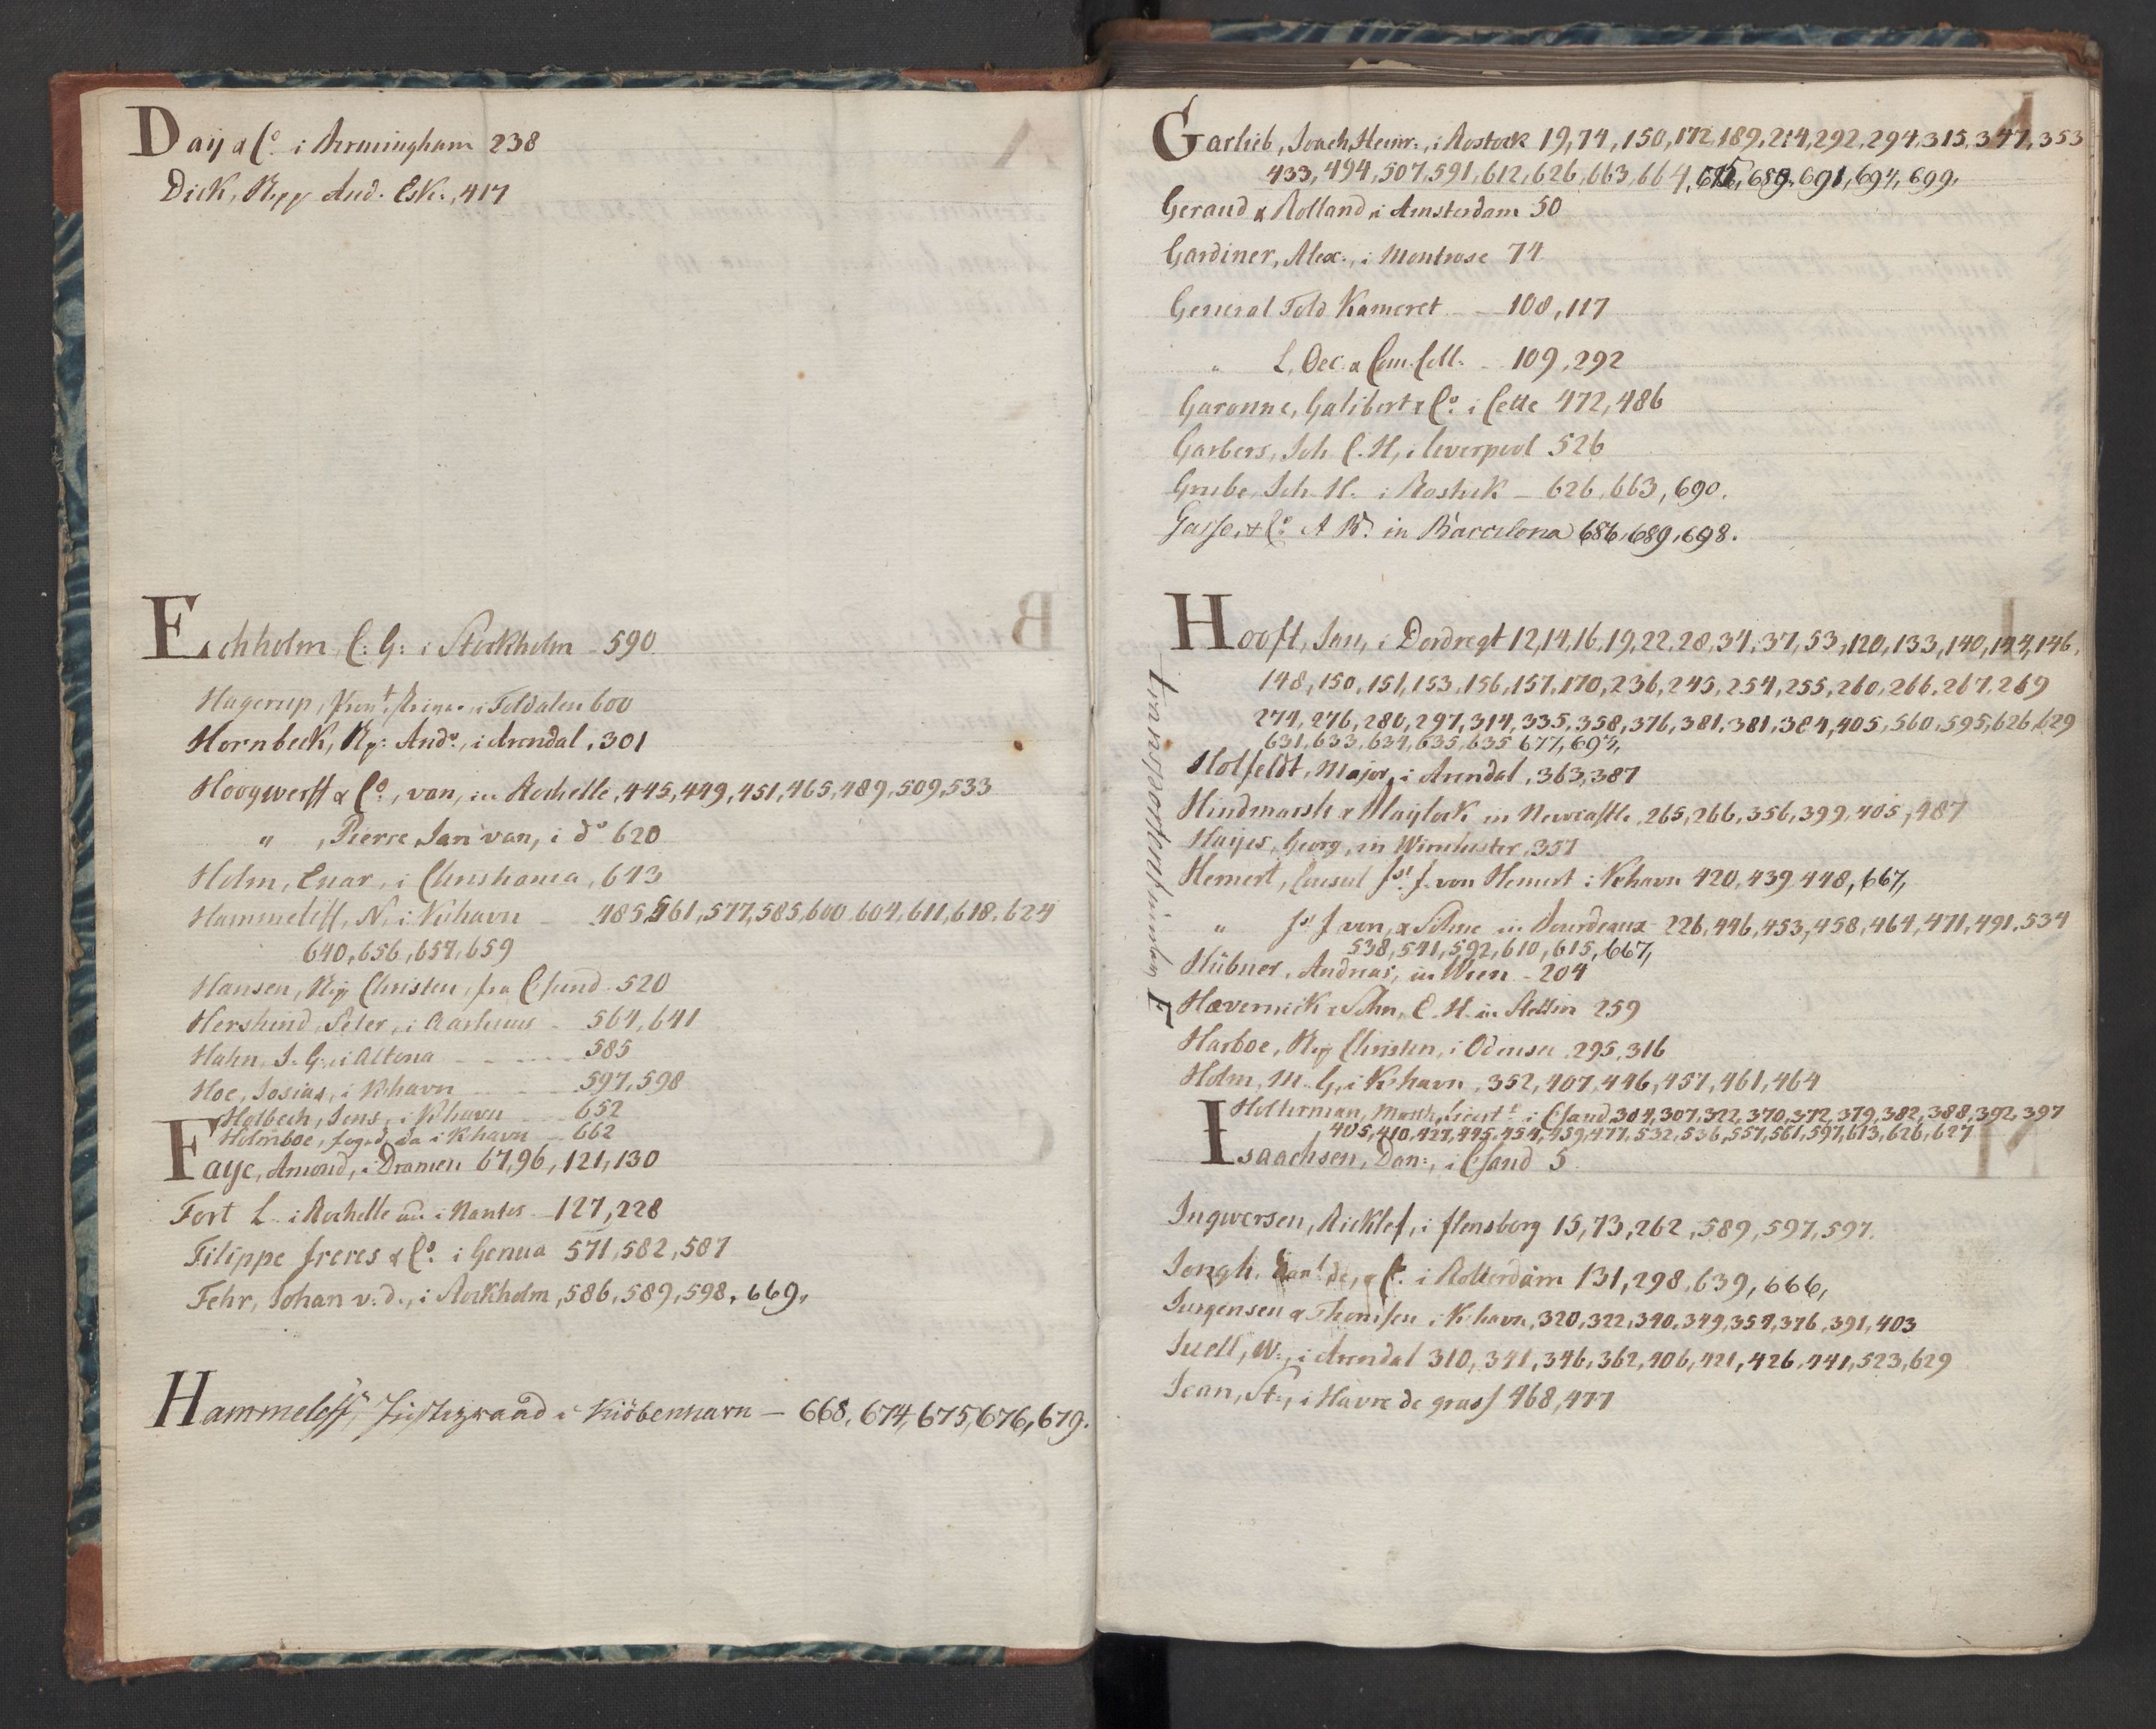 Day & Co. i Birmingham 238
Dick, And. Esk., 417
Eichholm C: G: i Stockholm - 590
Hagerup, i Foldalen 600
Hornbeck, And., i Arendal, 301
Hoogwerff & Co., van, in Rochelle, 445, 449, 451, 465, 489, 509, 533
" , Pierre Jan van, i do 620
Holm, Enar, i Christiania, 643
Hammeleff, N. i Kihavn - 485, 561, 577, 585, 600, 604, 611, 618, 624
640, 656, 657, 659
Hansen, Christen, fra C:sund 520
Hershind, Peter, i Aarhuus - 564, 641
Hahn, J. G., i Altona - 585
Hoe, Josias, i K:havn - 597, 598
Holbech, Jens, i K:havn 652
Holmboe, foged, da i K:havn - 662
Faye, Amond, i Dramen 67, 96, 121, 130
Fort L. i Rochelle i Nantes - 127, 228
Filippe freres & Co. i Genua 571, 582, 587
Fehr, Johan v. d., i Stockholm, 586, 589, 598, 669,
Hammeleff, Justizraad i Kiöbenhavn - 668, 674, 675, 676, 679.
Garlieb, Joach. Heinr., i Rostock 19, 74, 150, 172, 189, 214, 292, 294, 315, 347, 353
433, 494, 507, 591, 612, 626, 663, 664, 689, 691, 694, 699.
Geraud & Rolland i Amsterdam 50
Gardiner, Alex., i Montrose 74
General Told Kameret - - 108, 117
" L. Oec. & Com. Coll. - 109, 292
Garonne, Galibert & Co. i Cette 472, 486
Garbers, Joh C. H, i Leverpool 526
Grube, Joh. H. i Rostock - 626, 663, 690.
Gasse & Co. A B. in Barcelona 686, 689, 698.
Hooft, Jan, i Dordregt 12, 14, 16, 19, 22, 28, 34, 37, 53, 120, 133, 140, 144, 146,
148, 150, 151, 153, 156, 157, 170, 236, 245, 254, 255, 260, 266, 267, 269
274, 276, 280, 297, 314, 335, 358, 376, 381, 381, 384, 405, 560, 595, 626, 629
631, 633, 634, 635, 635, 677, 694,
Holfeldt, Major, i Arendal, 363, 387
Hindmarsh & Maylock in Newcastle, 265, 266, 356, 399, 405, 487
Hayes, Georg, in Winchester, 357
Hemert, Consul Js. J. von Hemert i K:havn 420, 439, 448, 667,
" Js J von, & Söhne in Bourdeaux - 226, 446, 453, 458, 464, 471, 491, 534
538, 541, 592, 610, 615, 667,
Hübner, Andreas, in Wien - 204
Hævernick & Sohn, C. H. in Stettin 259
Harboe, Christen, i Odensee, 295, 316
Holm, M. G., i K:havn, 352, 407, 446, 457, 461, 464
Holterman, i C:sand 304, 307, 322, 370, 372, 379, 382, 388, 392, 397
405, 410, 427, 445, 454, 459, 477, 532, 536, 557, 561, 597, 613, 626, 627
Transporteret under E
Isaachsen, Dan:, i C:sand 5
Ingwersen, Ricklef, i flensborg 15, 73, 262, 589, 597, 597.
Jongh, de, & C. i Rotterdam 131, 298, 639, 666,
Jurgensen & Thomsen i K:havn, 320, 322, 340, 349, 354, 376, 391, 403
Juell, W., i Arendal 310, 341, 346, 362, 406, 421, 426, 441, 523, 629
Jean, St., i Havre de grass 468, 477